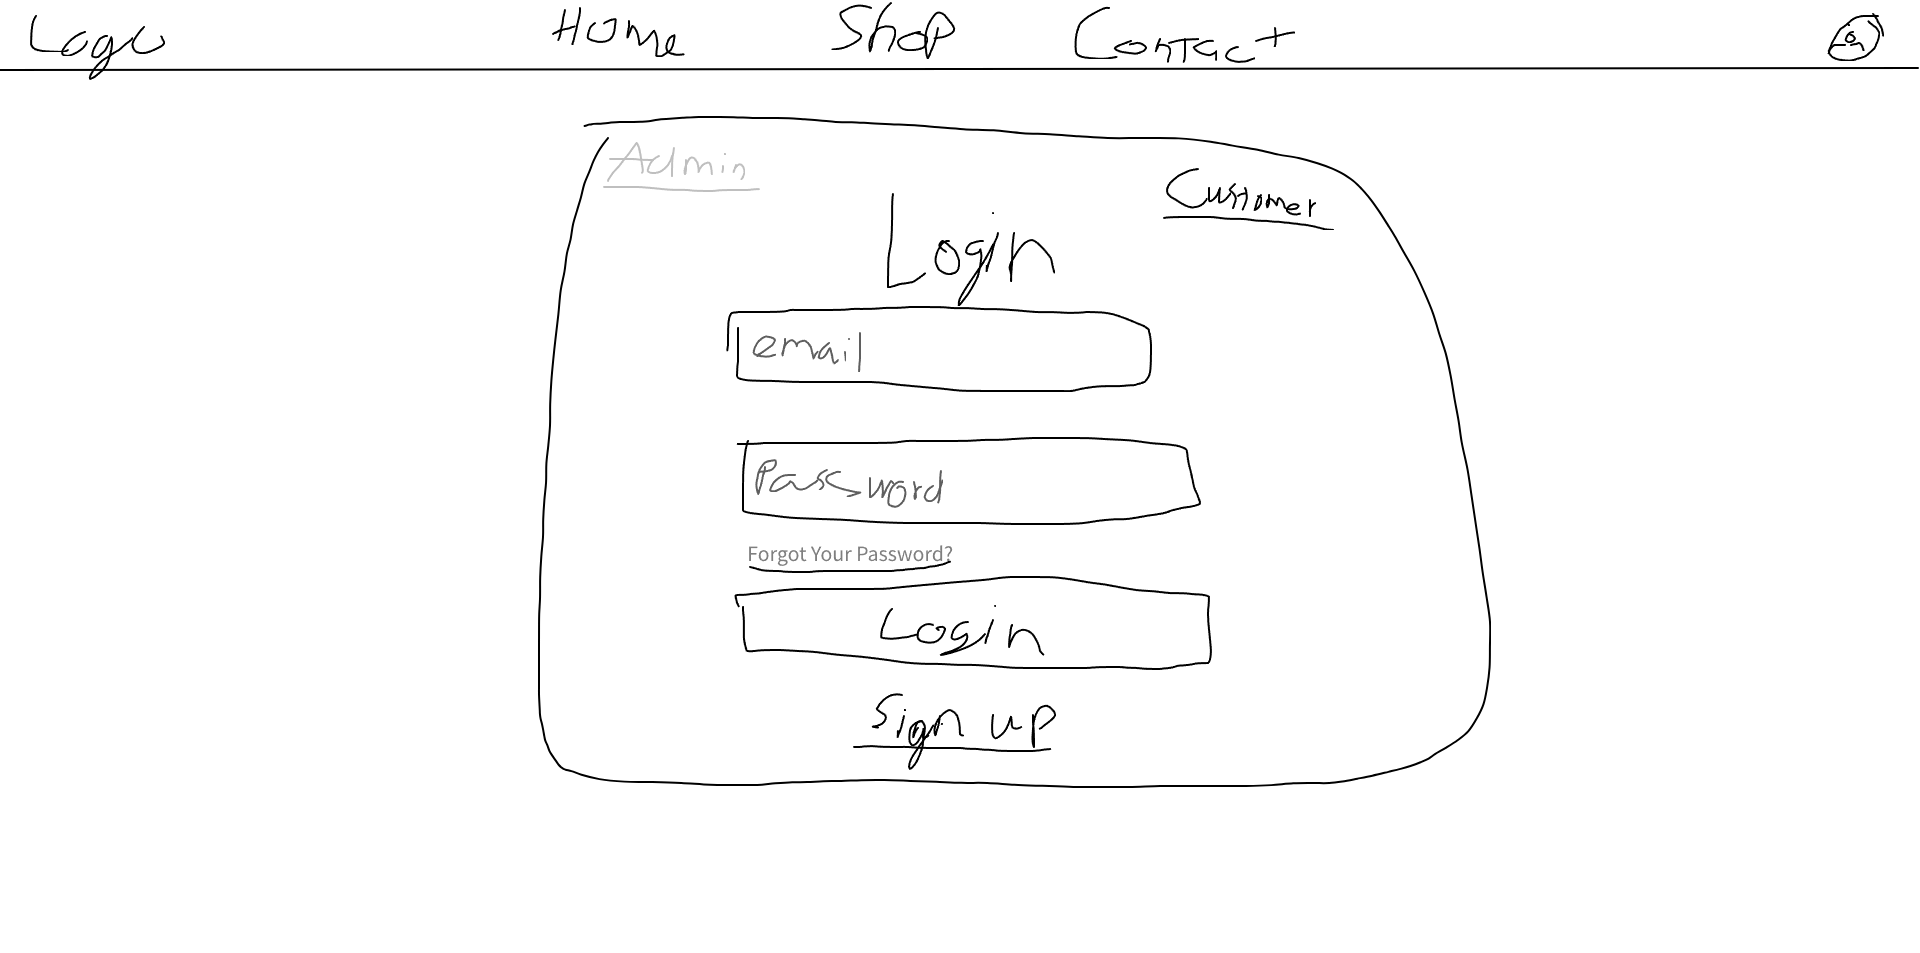 Logo Home Shop Contact
Admin
Customer
Login
email
Password
Forgot Your Password?
Login
Sign up